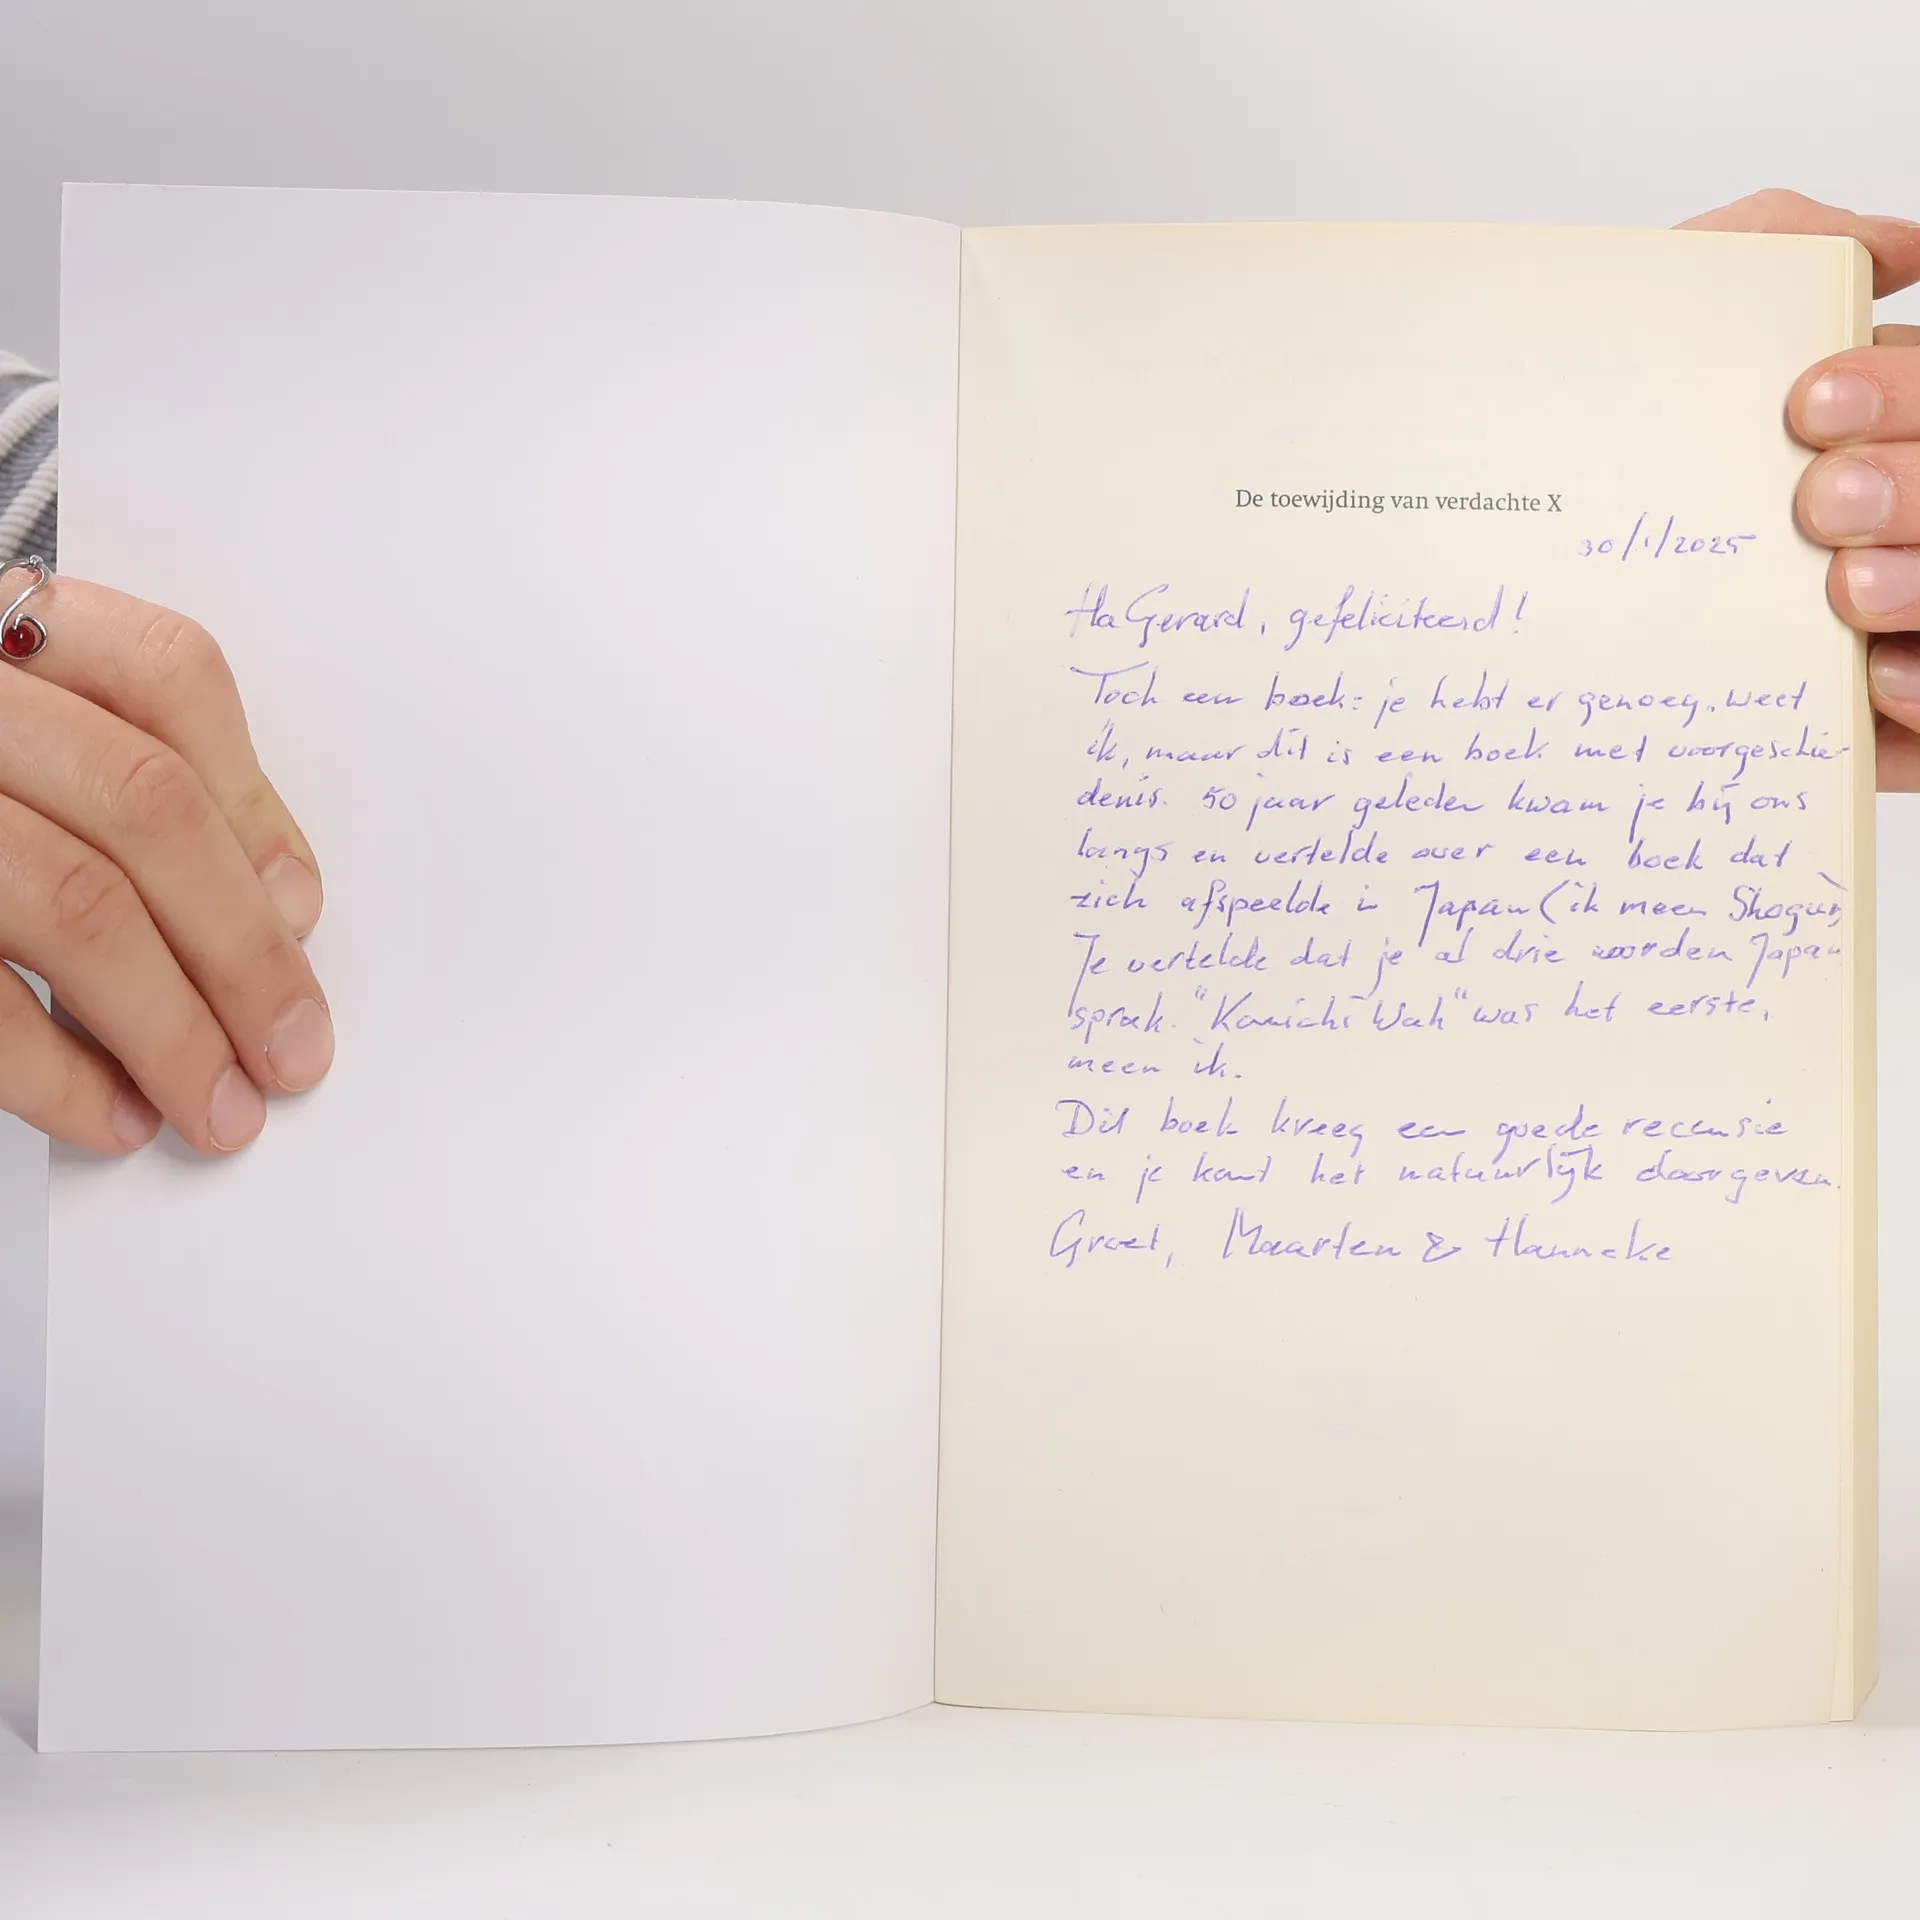 De toewijding van verdachte X
30/1/2025
Ha Gerard, gefeliciteerd!
Toch een boek: je hebt er genoeg, weet
ik, maar dit is een boek met voorgeschie-
denis. 50 jaar geleden kwam je bij ons
langs en vertelde over een boek dat
zich afspeelde in Japan (ik meen Shogun)
Je vertelde dat je al drie woorden Japan
sprak. "Konichi Wah" was het eerste,
meen ik.
Dit boek kreeg een goede recensie
en je kant het natuurlijk doorgeven.
Groet, Maarten & Hanneke